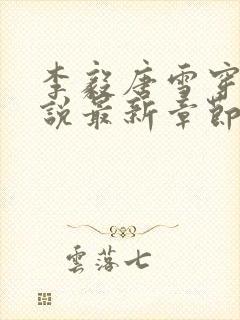 李毅唐雪穿
說最新章節
雲落七